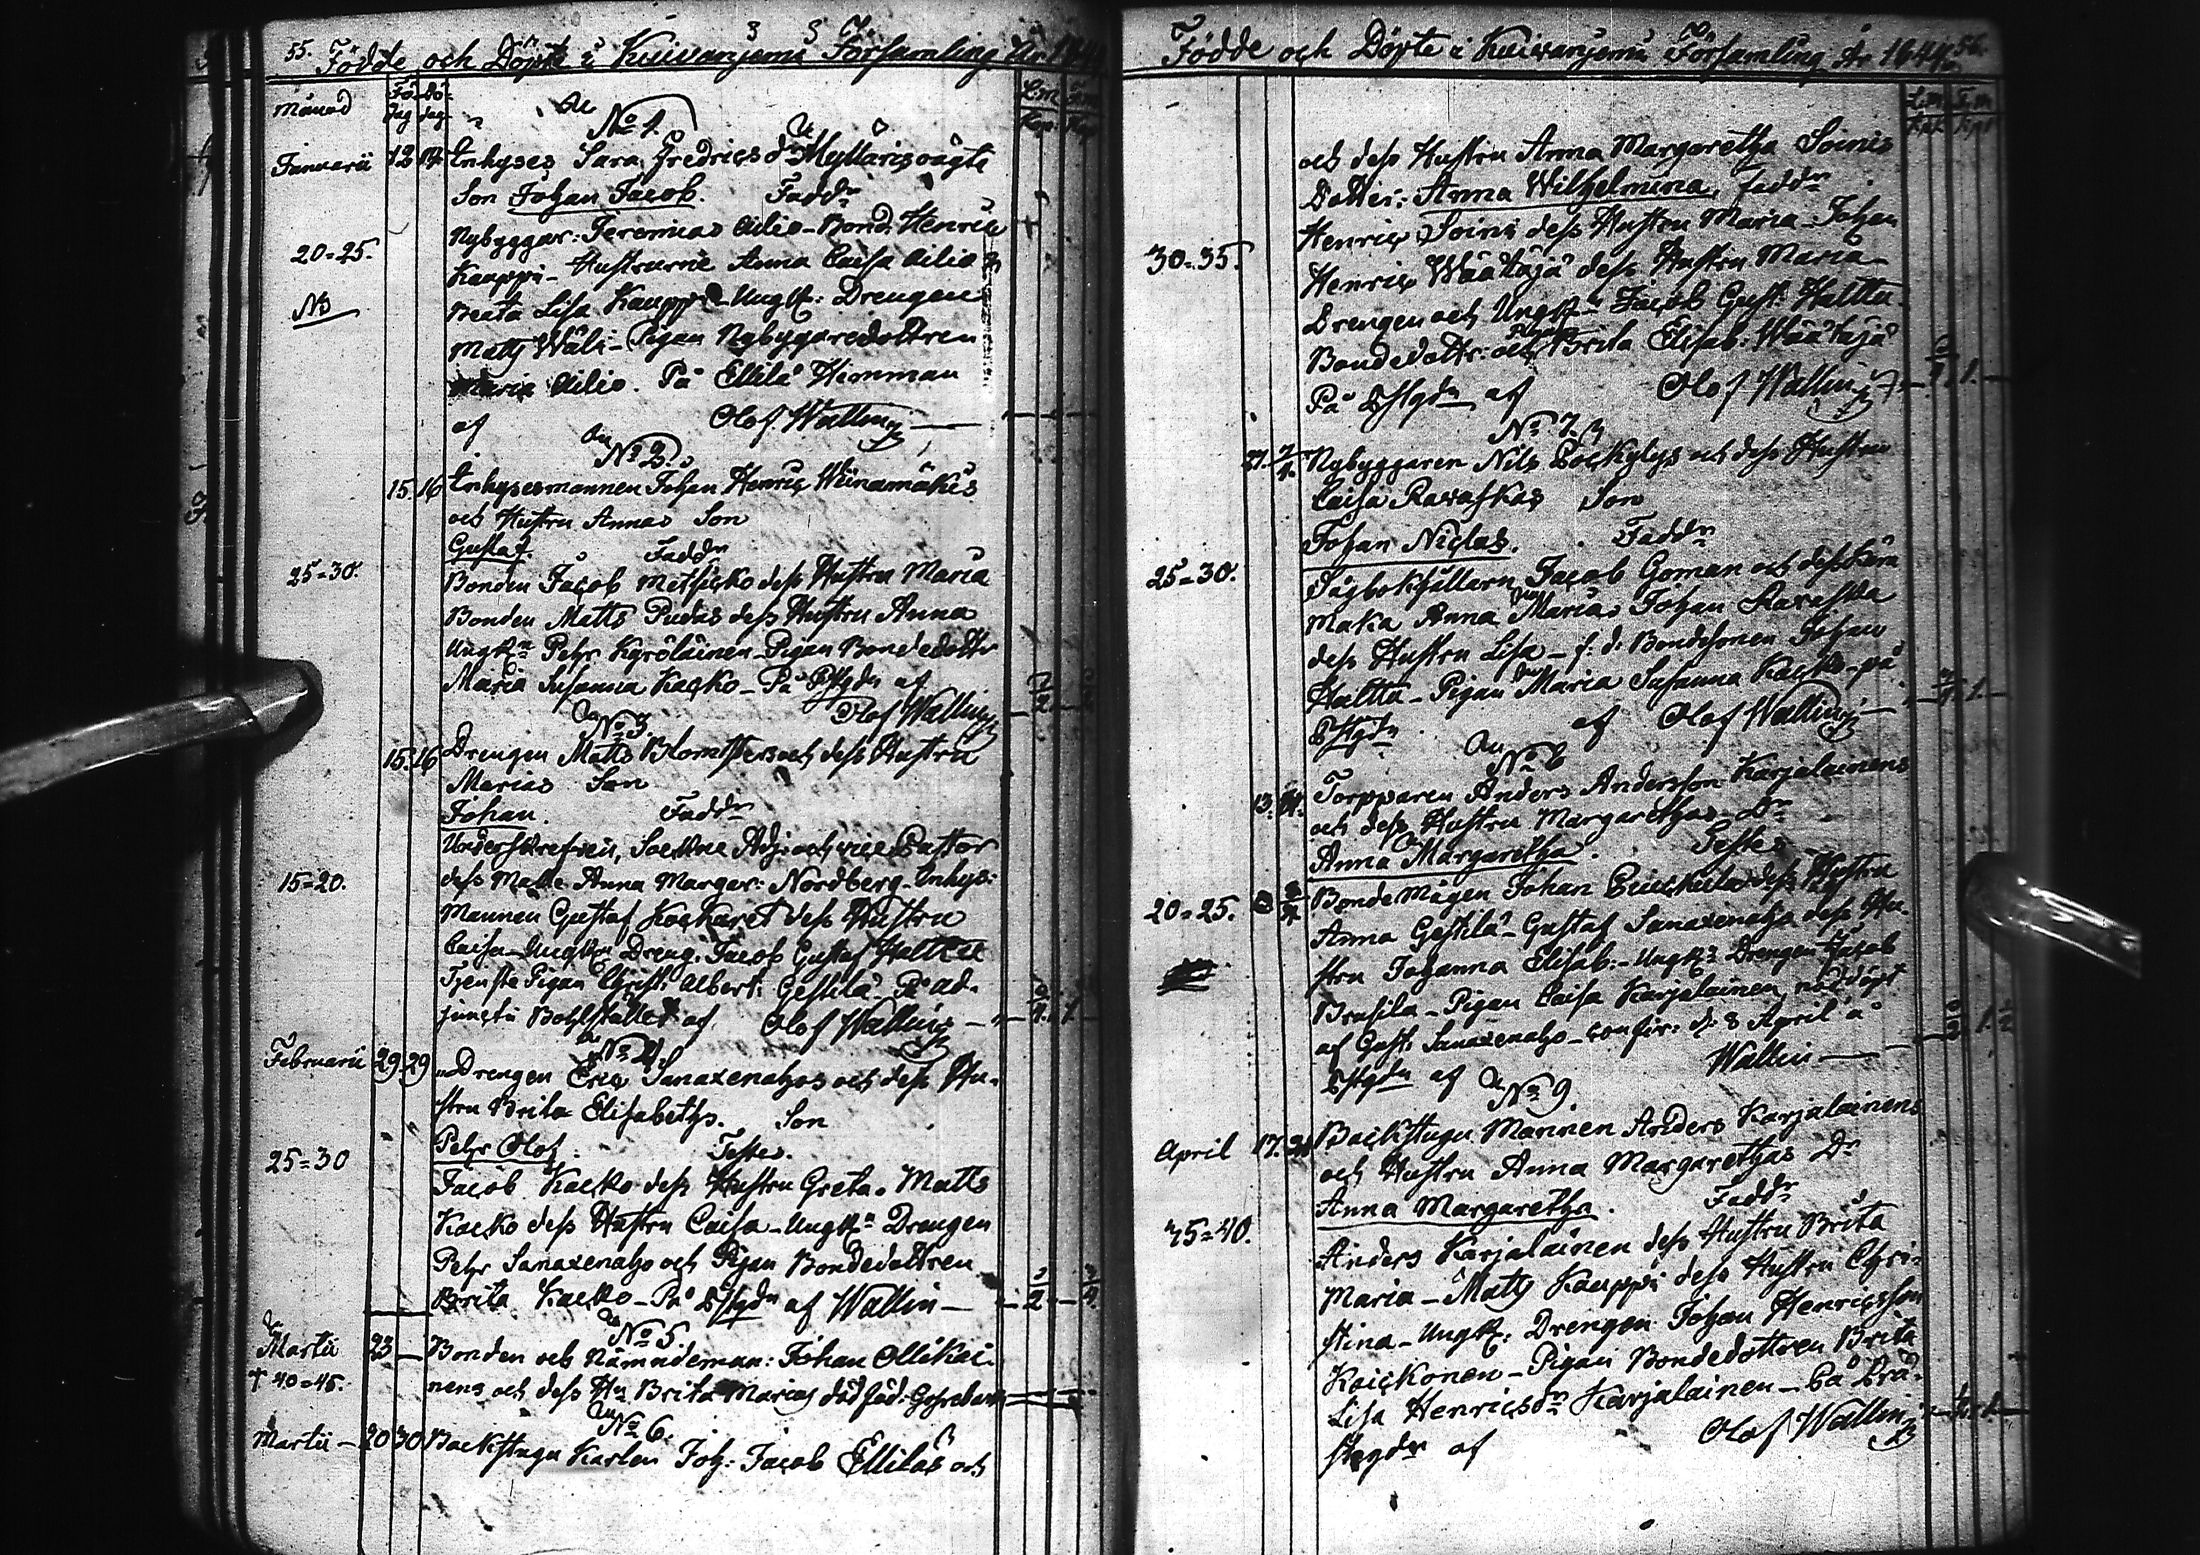 55. Födde och Döpte i Kuivaniemi Församling År 1844
Månad Fö- Dö-
dag dag
No 1.
Januarii 12 14 Inhyses Sara Fredricsdr Myllaris oägte
Son Johan Jacob. Faddr
Nybyggar: Jeremias Ailio - Bond. Henric
20=25. Kauppi - Hustrurne Anna Caisa Ailio o
Beata Lisa Kauppi - Ungk: Drengen
NB
Matts Wäli - Pigan Nybyggaredottren
Maria Ailio. På Ellilä Hemman
af Olof Wallin
No 2.
15. 16 Inhysesmannen Johan Henric Wiinamäkis
och Hustru Annas Son
Gustaf. Faddr
25=30. Bonden Jacob Metsicko dess Hustru Maria
Bonden Matts Pudas dess Hustru Anna
Ungkn Pehr Kyröläinen - Pigan Bondedottr
Maria Susanna Kacko - På Pstgdn af
Olof Wallin
No 3.
15. 16 Drengen Matts Blomsters och dess Hustru
Marias Son
Johan. Faddr
Underskrefven, Sockne Adj: och vice Pastor
15=20. dess Maka Anna Margar: Nordberg - Inhys:
Mannen Gustaf Kockaret dess Hustru
Caisa - Ungkn Dreng. Jacob Gustaf Haltta
Tjenste Pigan Christ: Albert: Gestilä - På Ad-
juncts Bohlstället af Olof Wallin
No 4.
Februarii 29 29 Drengen Eric Sanaxenahos och dess Hu-
stru Brita Elisabeths. Son
Pehr Olof. Testes.
25=30 Jacob Kacko dess Hustru Greta. Matts
Kacko dess Hustru Caisa - Ungkn Drengen
Pehr Sanaxenaho och Pigan Bondedottren
Brita Kacko - På Pstgdn af Wallin -
No 5.
Martii 23 - Bonden och Nämndeman: Johan Ollikai-
† 40=45. nens och dess Hu Brita Marias död föd: Gossebarn
No 6.
Martii - 20 30 Backstugu Karlen Joh: Jacob Ellilas och
Födde och Döpte i Kuivaniemi Församling År 1844. 56.
och dess Hustru Anna Margaretha Soinis
Dotter: Anna Wilhelmina, Faddr
Henric Soini dess Hustru Maria - Johan
30=35. Henric Wäätäjä dess Hustru Maria -
Drengen och Ungkn Jacob Gust: Haltta
Bondedottr: och Pigan Brita Elisab: Wäätäjä
På Pstgdn af Olof Wallin
No 7.
27. 7/4. Nybyggaren Nils Bäckkylys och dess Hustru
Caisa Ravaskas Son
Johan Niclas. Faddr
25=30. Sågbokhållarn Jacob Goman och dess kära
Maka Anna Maria. Johan Ravaska
dess Hustru Lisa - f: d: Bondesonen Johan
Haltta - Pigan Maria Susanna Kacko - på
Pstgdn af Olof Wallin
No 8
13. 14. Torpparen Anders Andersson Karjalainens
och dess Hustru Margarethas Dr
Anna Margaretha. Testes
20=25. 8/4 Bonde Mågen Johan dess Hustru
Anna Gestilä - Gustaf Sanaxenaho dess Hu-
stru Johanna Elisab: - Ungkn Drengen Jacob
Brusila - Pigan Caisa Karjalainen nöddöpt
af Gust: Sanaxenaho - confir: d: 8 April å
Pstgdn af Wallin -
No 9.
April 17. 21 Backstugu Mannen Anders Karjalainens
och Hustru Anna Margarethas Dr
Anna Margaretha. Faddr
35=40. Anders Karjalainen dess Hustru Brita
Maria - Matts Kauppi dess Hustru Chri-
stina - Ungk: Drengen Johan Henricsson
Kaickonen - Pigan Bondedottren Brita
Lisa Henricsdr Karjalainen - På Prä-
stegdn af Olof Wallin